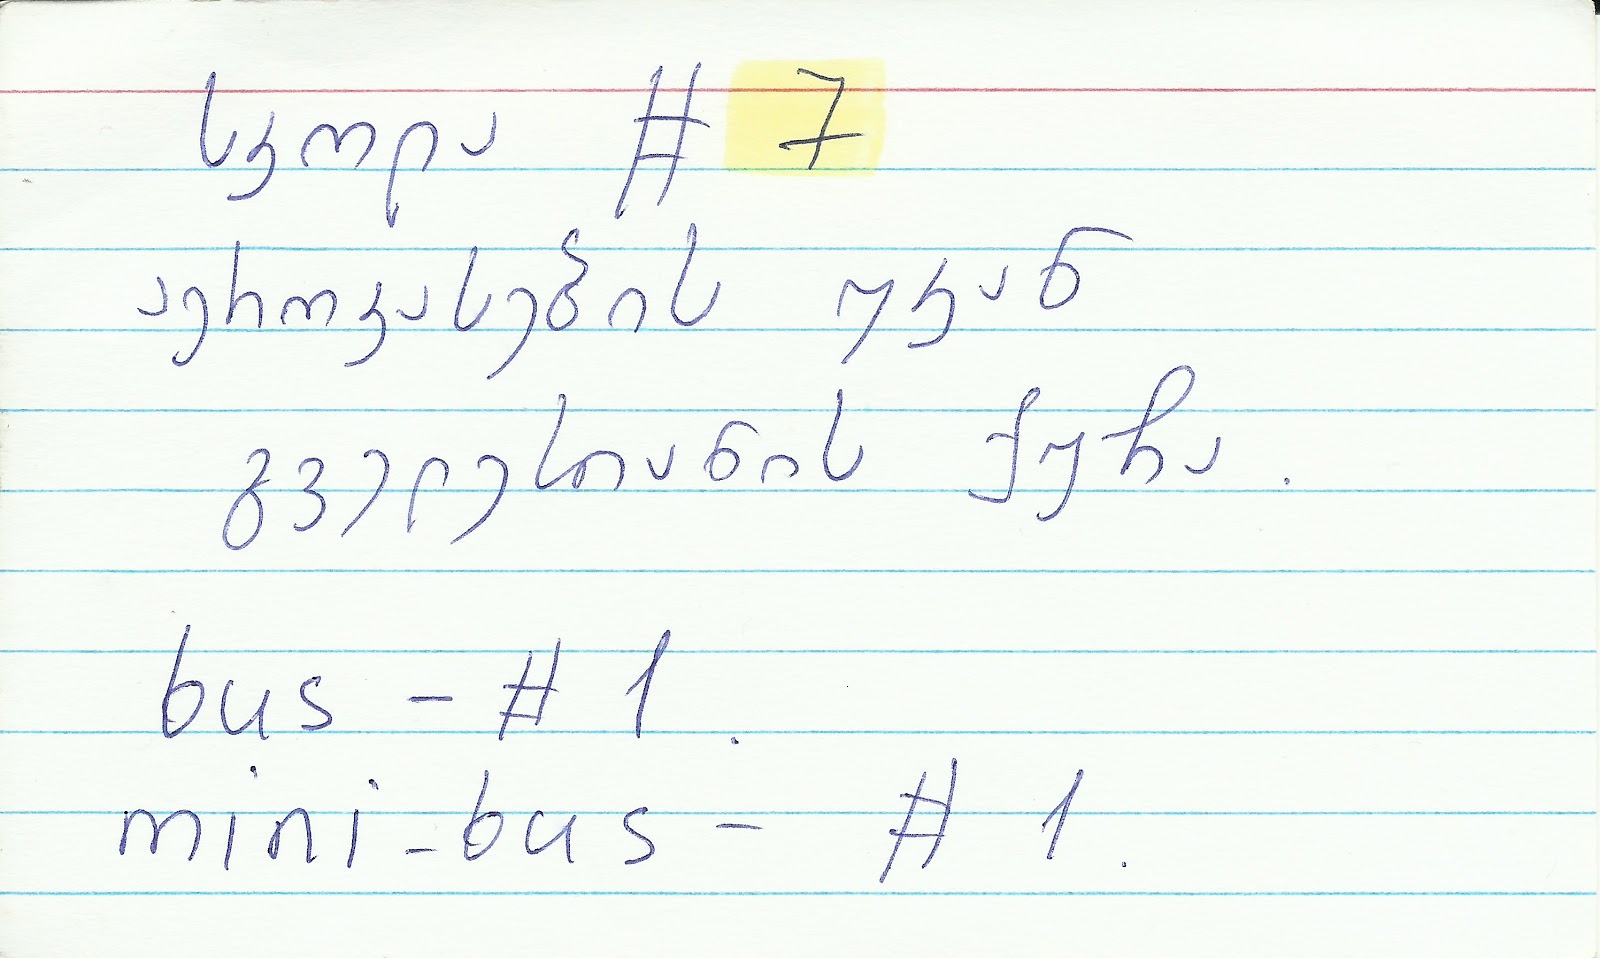 სკოლა # 7
აეროკასების უკან
გველესიანის ქუჩა.
bus - # 1.
mini-bus - # 1.